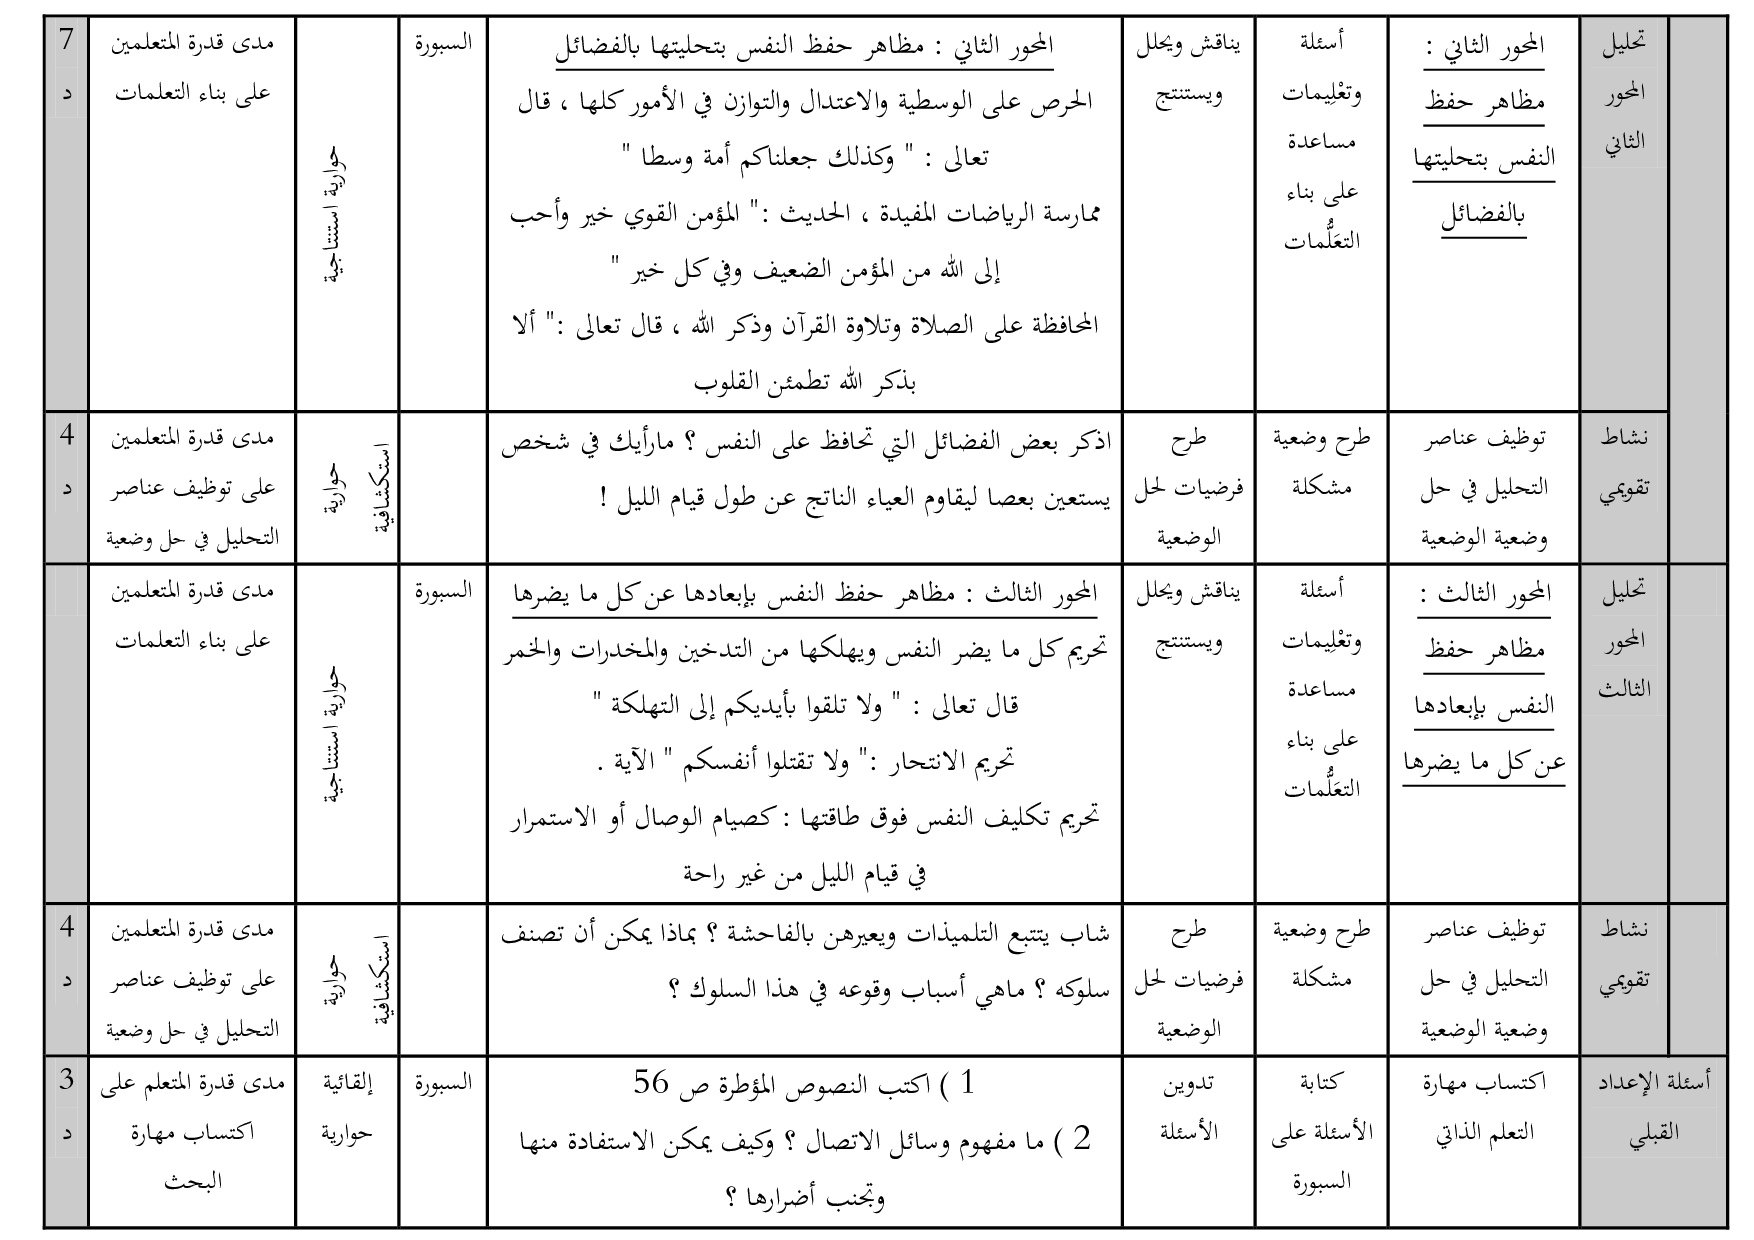 تحليل
المحور
الثاني
المحور الثاني :
مظاهر حفظ
النفس بتحليتها
بالفضائل
أسئلة
وتعْلِيمات
مساعدة
على بناء
التعَلُّمات
يناقش ويحلل
ويستنتج
المحور الثاني : مظاهر حفظ النفس بتحليتها بالفضائل
الحرص على الوسطية والاعتدال والتوازن في الأمور كلها ، قال
تعالى : " وكذلك جعلناكم أمة وسطا "
ممارسة الرياضات المفيدة ، الحديث :" المؤمن القوي خير وأحب
إلى الله من المؤمن الضعيف وفي كل خير "
المحافظة على الصلاة وتلاوة القرآن وذكر الله ، قال تعالى :" ألا
بذكر الله تطمئن القلوب
السبورة
حوارية استنتاجية
مدى قدرة المتعلمين
على بناء التعلمات
7
د
نشاط
تقويمي
توظيف عناصر
التحليل في حل
وضعية الوضعية
طرح وضعية
مشكلة
طرح
فرضيات لحل
الوضعية
اذكر بعض الفضائل التي تحافظ على النفس ؟ مارأيك في شخص
يستعين بعصا ليقاوم العياء الناتج عن طول قيام الليل !
حوارية
استكشافية
مدى قدرة المتعلمين
على توظيف عناصر
التحليل في حل وضعية
4
د
تحليل
المحور
الثالث
المحور الثالث :
مظاهر حفظ
النفس بإبعادها
عن كل ما يضرها
أسئلة
وتعْلِيمات
مساعدة
على بناء
التعَلُّمات
يناقش ويحلل
ويستنتج
المحور الثالث : مظاهر حفظ النفس بإبعادها عن كل ما يضرها
تحريم كل ما يضر النفس ويهلكها من التدخين والمخدرات والخمر
قال تعالى : " ولا تلقوا بأيديكم إلى التهلكة "
تحريم الانتحار :" ولا تقتلوا أنفسكم " الآية .
تحريم تكليف النفس فوق طاقتها : كصيام الوصال أو الاستمرار
في قيام الليل من غير راحة
السبورة
حوارية استنتاجية
مدى قدرة المتعلمين
على بناء التعلمات
نشاط
تقويمي
توظيف عناصر
التحليل في حل
وضعية الوضعية
طرح وضعية
مشكلة
طرح
فرضيات لحل
الوضعية
شاب يتتبع التلميذات ويعيرهن بالفاحشة ؟ بماذا يمكن أن تصنف
سلوكه ؟ ماهي أسباب وقوعه في هذا السلوك ؟
حوارية
استكشافية
مدى قدرة المتعلمين
على توظيف عناصر
التحليل في حل وضعية
4
د
أسئلة الإعداد
القبلي
اكتساب مهارة
التعلم الذاتي
كتابة
الأسئلة على
السبورة
تدوين
الأسئلة
1 ) اكتب النصوص المؤطرة ص 56
2 ) ما مفهوم وسائل الاتصال ؟ وكيف يمكن الاستفادة منها
وتجنب أضرارها ؟
السبورة
إلقائية
حوارية
مدى قدرة المتعلم على
اكتساب مهارة
البحث
3
د